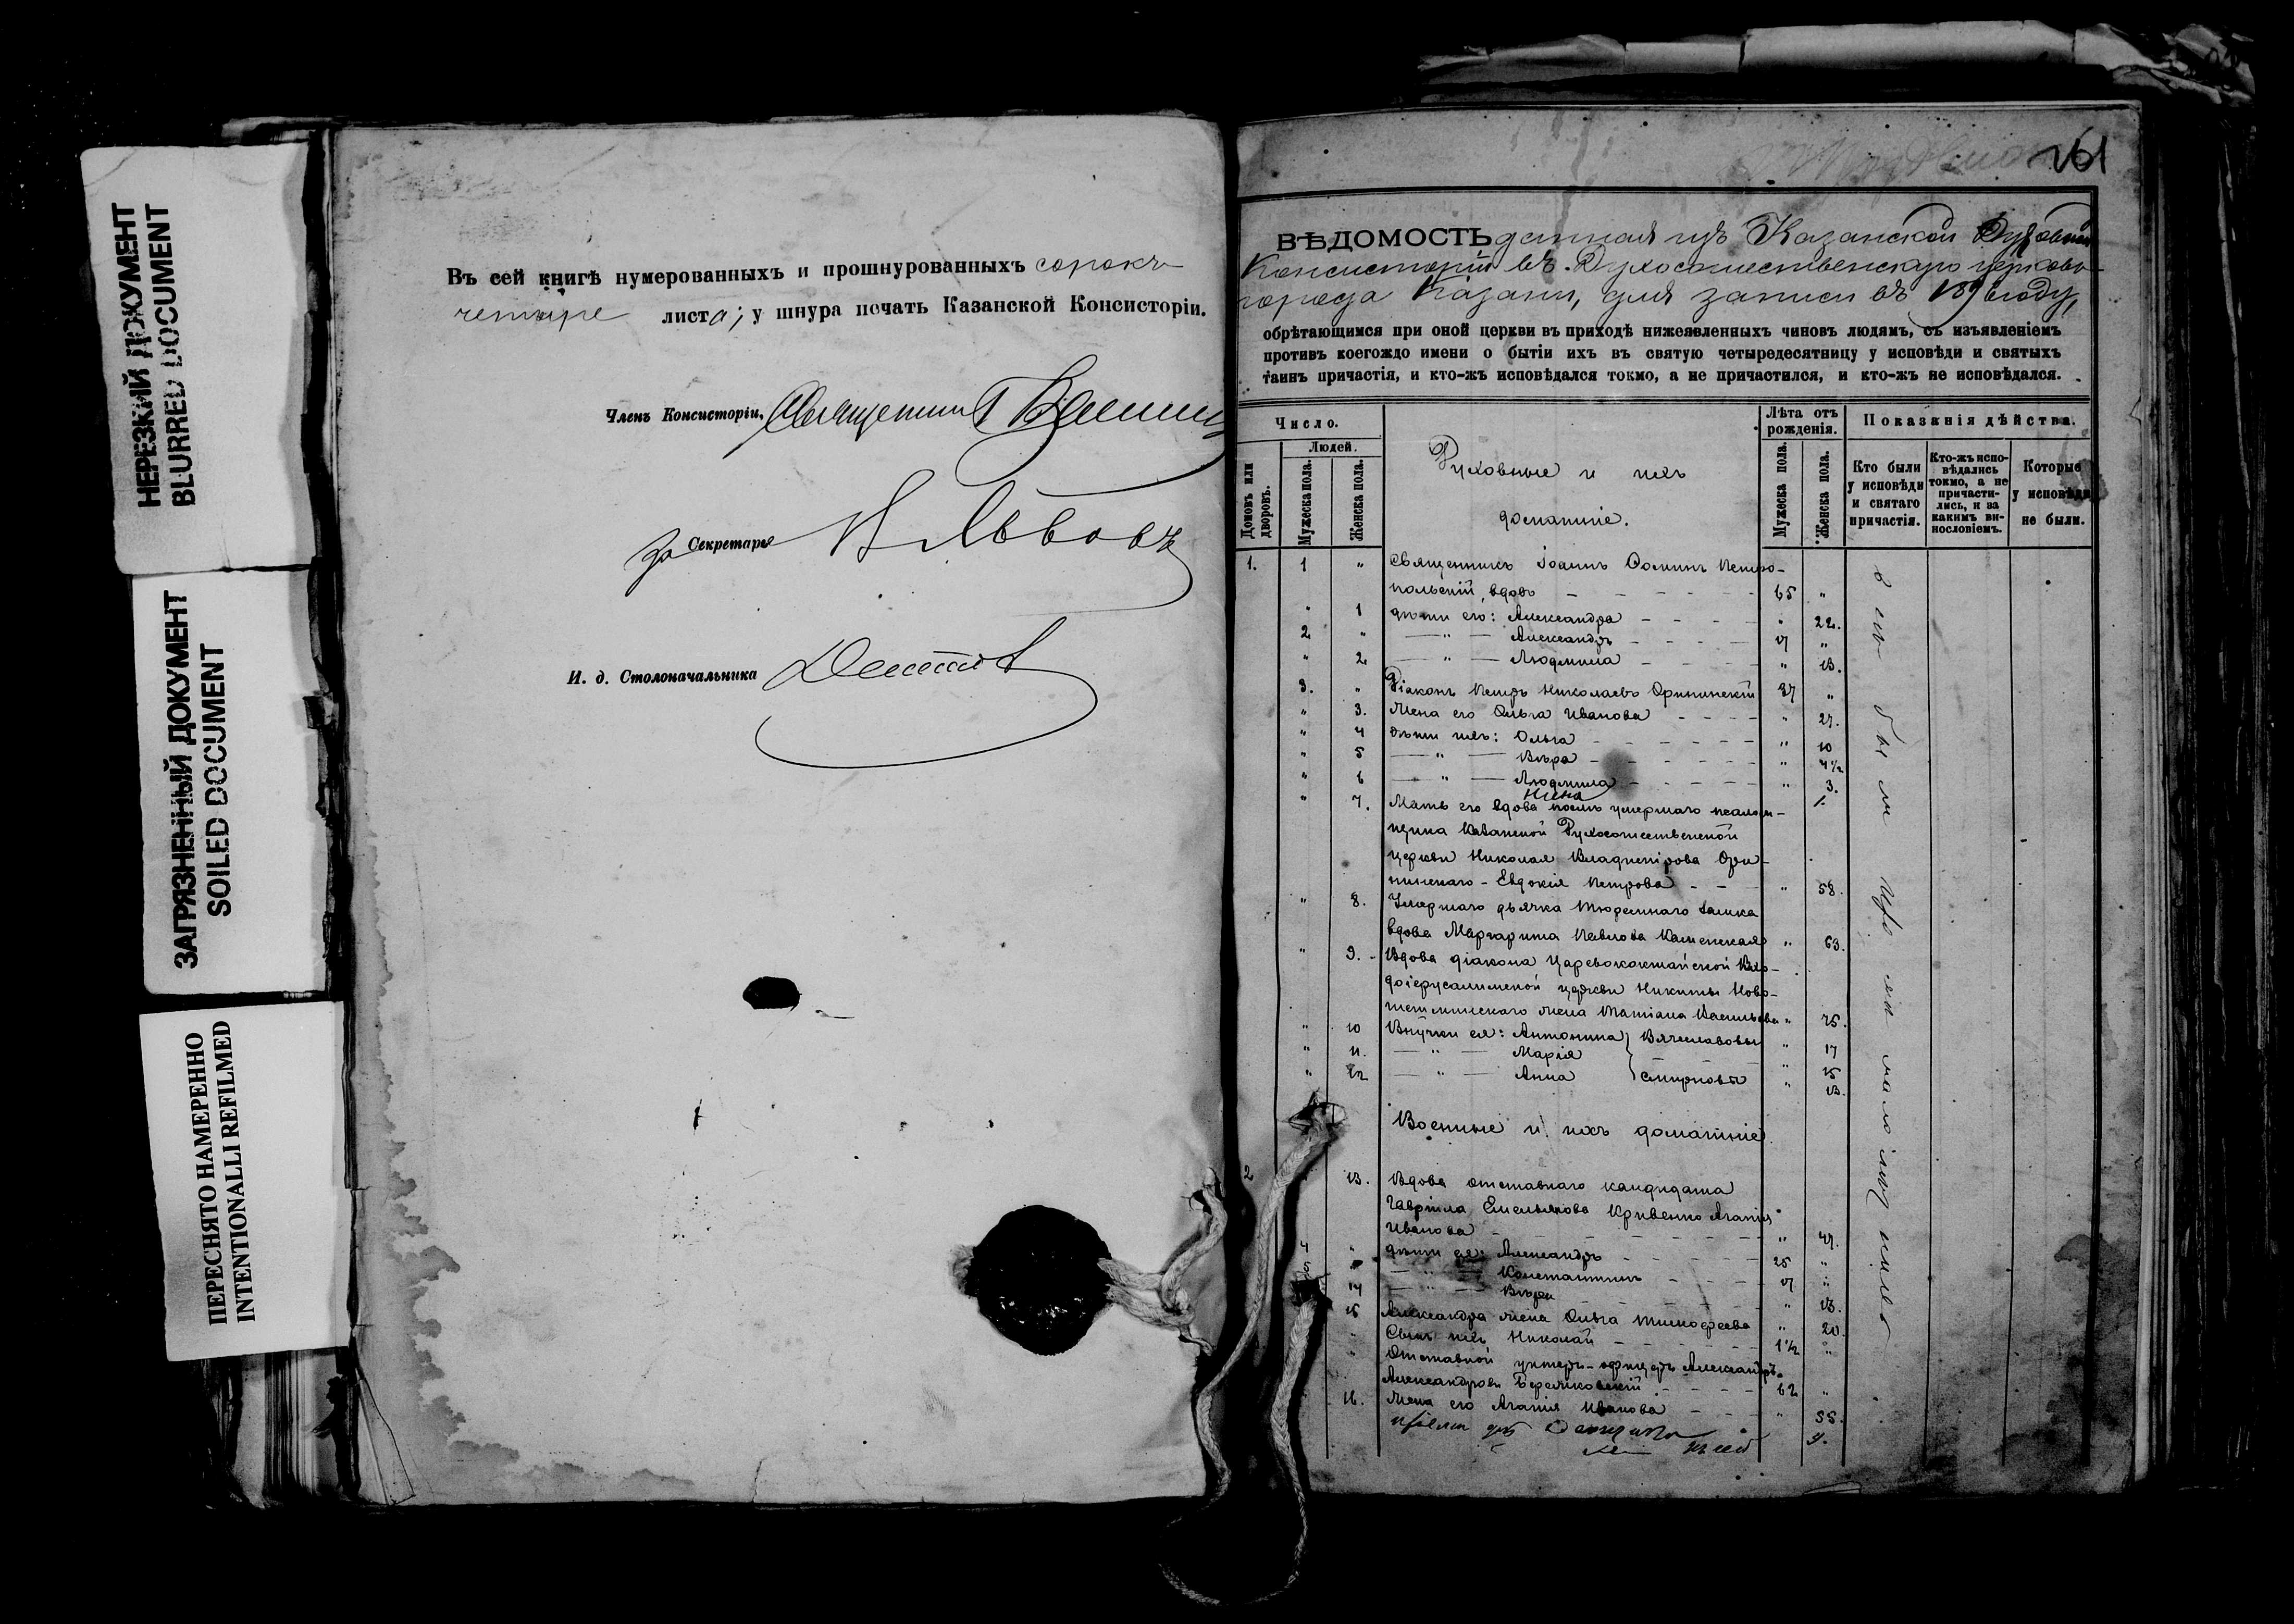 НЕРЕЗКИЙ ДОКУМЕНТ
BLURRED DOCUMENT
ЗАГРЯЗНЕННЫЙ ДОКУМЕНТ
SOILED DOCUMENT
ПЕРЕСНЯТО НАМЕРЕННО
INTENTIONALLI REFILMED
Въ сей книгѣ нумерованныхъ и прошнурованныхъ сорокъ
четыре листа; у шнура печать Казанской Консисторіи.
Членъ Консисторіи, Священникъ
За Секретаря Н Львовъ
И. д. Столоначальника
261
ВѢДОМОСТЬ данная изъ Казанской Духовной
Консисторіи въ Духосошественскую церковь
города Казани, для записи въ 1896 году,
обрѣтающимся при оной церкви въ приходѣ нижеявленныхъ чиновъ людямъ, съ изъявленіемъ
противъ коегождо имени о бытіи ихъ въ святую четыредесятницу у исповѣди и святыхъ
таинъ причастія, и кто-жъ исповѣдался токмо, а не причастился, и кто-жъ не исповѣдался.
Число.
Людей.
Домовъ или дворовъ.
Мужеска пола.
Женска пола.
Духовные и ихъ
домашніе.
Лѣта отъ рожденія.
Мужеска пола.
Женска пола.
Показанія дѣйства.
Кто были у исповѣди и святаго причастія.
Кто-жъ исповѣдались токмо, а не причастились, и за какимъ винословіемъ.
Которые у исповѣди не были.
1. 1 " Священникъ Іоаннъ Ѳоминъ Петро-
польскій, вдовъ 65 "
" 1 дѣти его: Александра " 22.
2 " — " — Александръ 17 "
" 2 — " — Людмила " 13.
3. " Діаконъ Петръ Николаевъ Орининскій 37 "
" 3. Жена его Ольга Иванова " 27.
" 4 Дѣти ихъ: Ольга " 10
" 5 — " — Вѣра " 4½
" 6 — " — Людмила " 3.
Нина 1.
" 7. Мать его вдова послѣ умершаго псалом-
щика Казанской Духосошественской
церкви Николая Владимірова Ори-
нинскаго - Евдокія Петрова " 58.
" 8. Умершаго дьячка Тюремнаго замка
вдова Маргарита Павлова Каменская " 63.
" 9. Вдова діакона Царевококшайской Вхо-
доіерусалимской церкви Никиты Ново-
жена Татіана Васильева " 75.
" 10 Внучки ея: Антонина } Вячеславовы " 17
" 11. — " — Марія " 15
" 12 — " — Анна } Смирновы " 13.
Военные и ихъ домашніе.
2 13. Вдова отставнаго кандидата
Гавріила Емельянова Кривенко Агапія
Иванова " 47.
4 " дѣти ея: Александръ 25 "
5 " — " — Константинъ 17 "
14 — " — Вѣра " 13.
15 Александра жена Ольга Тимофеева " 20.
Сынъ ихъ Николай 1½ "
Отставной унтеръ-офицеръ Александръ
Александровъ 62 "
16. Жена его Агапія Иванова " 55.
9.